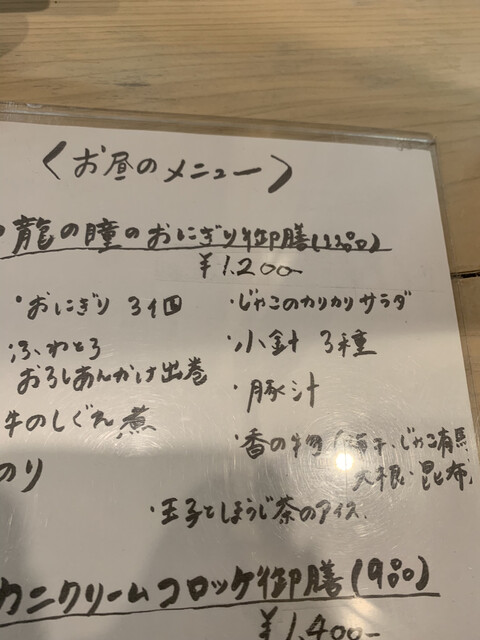 〈お昼のメニュー〉
龍の瞳のおにぎり御膳
¥1,200-
・おにぎり 3個
・じゃこのカリカリサラダ
ふわとろ
おろしあんかけ出巻
・小針 3種
牛のしぐれ煮
・豚汁
のり
・香の物
じゃこ有馬
大根・昆布
・玉子とほうじ茶のアイス
カニクリームコロッケ御膳
¥1,400-